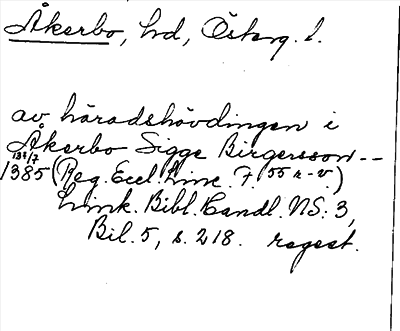 Åkerbo, hd, Österg. l.
av häradshövdingen i
Åkerbo Sigge Birgersson --
13 2/7
1385 (Reg. Eccl. Linc. F. 55 r-v.)
Link. Bibl. Handl. NS: 3,
Bil. 5, s. 218. regest.